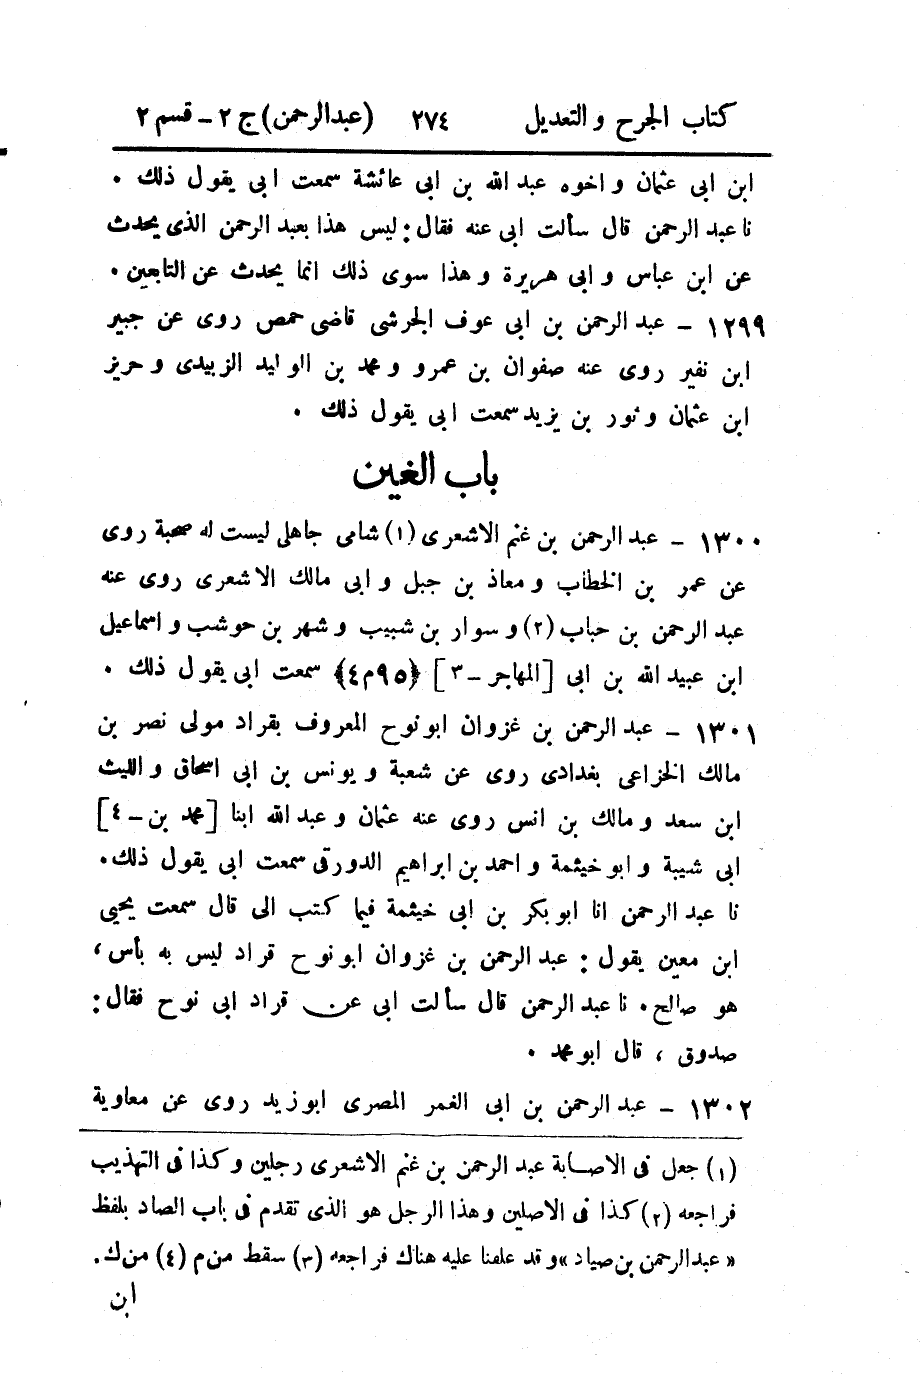 كتاب الجرح والتعديل ٢٧٤ (عبدالرحمن) ج ٢ - قسم ٢
ابن ابى عثمان واخوه عبد الله بن ابى عائشة سمعت ابى يقول ذلك .
نا عبد الرحمن قال سألت ابى عنه فقال : ليس هذا بعبد الرحمن الذى يحدث
عن ابن عباس وابى هريرة وهذا سوى ذلك انما يحدث عن التابعين .
١٢٩٩ - عبد الرحمن بن ابى عوف الجرشى قاضى حمص روى عن جبير
ابن نفير روى عنه صفوان بن عمرو ومحمد بن الوليد الزبيدى وحريز
ابن عثمان وثور بن يزيد سمعت ابى يقول ذلك .
باب الغين
١٣٠٠ - عبد الرحمن بن غنم الاشعرى (١) شامى جاهلى ليست له صحبة روى
عن عمر بن الخطاب ومعاذ بن جبل وابى مالك الاشعرى روى عنه
عبد الرحمن بن حباب (٢) وسوار بن شبيب وشهر بن حوشب واسماعيل
ابن عبيد الله بن ابى [المهاجر - ٣] ﴿٩٥م٤﴾ سمعت ابى يقول ذلك .
١٣٠١ - عبد الرحمن بن غزوان ابو نوح المعروف بقراد مولى نصر بن
مالك الخزاعى بغدادى روى عن شعبة ويونس بن ابى اسحاق والليث
ابن سعد ومالك بن انس روى عنه عثمان وعبد الله ابنا [محمد بن - ٤]
ابى شيبة وابو خيثمة واحمد بن ابراهيم الدورقى سمعت ابى يقول ذلك .
نا عبد الرحمن انا ابو بكر بن ابى خيثمة فيما كتب الى قال سمعت يحيى
ابن معين يقول : عبد الرحمن بن غزوان ابو نوح قراد ليس به بأس ،
هو صالح . نا عبد الرحمن قال سألت ابى عن قراد ابى نوح فقال :
صدوق ، قال ابو محمد .
١٣٠٢ - عبد الرحمن بن ابى الغمر المصرى ابو زيد روى عن معاوية
(١) جعل فى الاصابة عبد الرحمن بن غنم الاشعرى رجلين وكذا فى التهذيب
فراجعه (٢) كذا فى الاصلين وهذا الرجل هو الذى تقدم فى باب الصاد بلفظ
« عبد الرحمن بن صياد » وقد علقنا عليه هناك فراجعه (٣) سقط من م (٤) من ك .
ابن